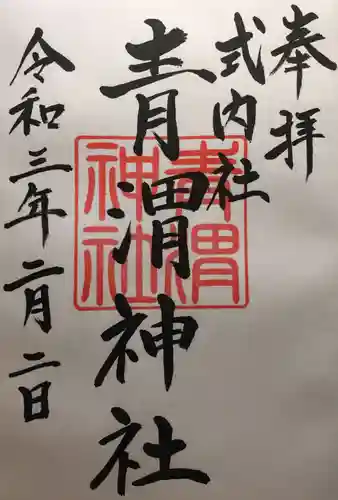 奉拝
式内社
青渭神社
青渭神社
令和三年二月二日